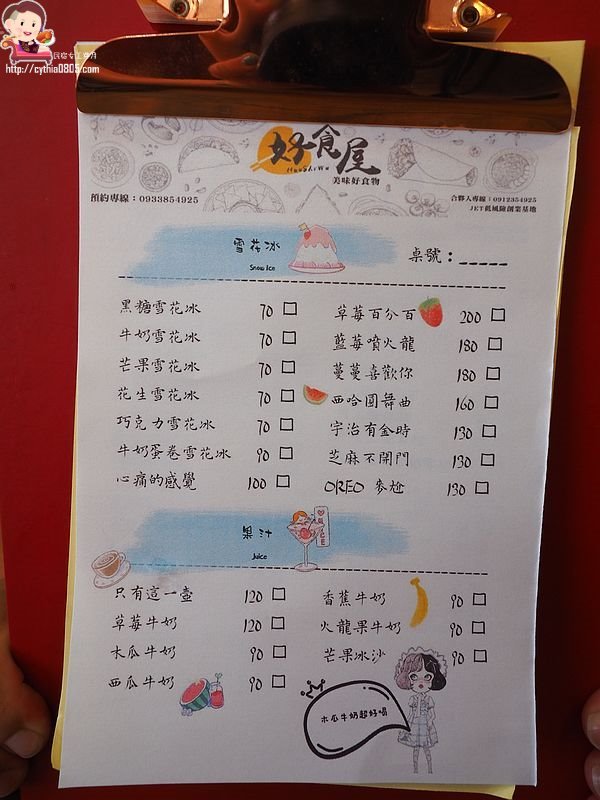 民宿女王芽月
http://cythia0805.com
好食屋
HaoShiWu
美味好食物
預約專線：0933854925
合夥人專線：0912354925
JET低風險創業基地
雪花冰
Snow Ice
桌號：_____
黑糖雪花冰 70 □
牛奶雪花冰 70 □
芒果雪花冰 70 □
花生雪花冰 70 □
巧克力雪花冰 70 □
牛奶蛋卷雪花冰 90 □
心痛的感覺 100 □
草莓百分百 200 □
藍莓噴火龍 180 □
蔓蔓喜歡你 180 □
西哈圓舞曲 160 □
宇治有金時 130 □
芝麻不開門 130 □
OREO 麥尬 130 □
果汁
Juice
只有這一壺 120 □
草莓牛奶 120 □
木瓜牛奶 90 □
西瓜牛奶 90 □
香蕉牛奶 90 □
火龍果牛奶 90 □
芒果冰沙 90 □
木瓜牛奶超好喝